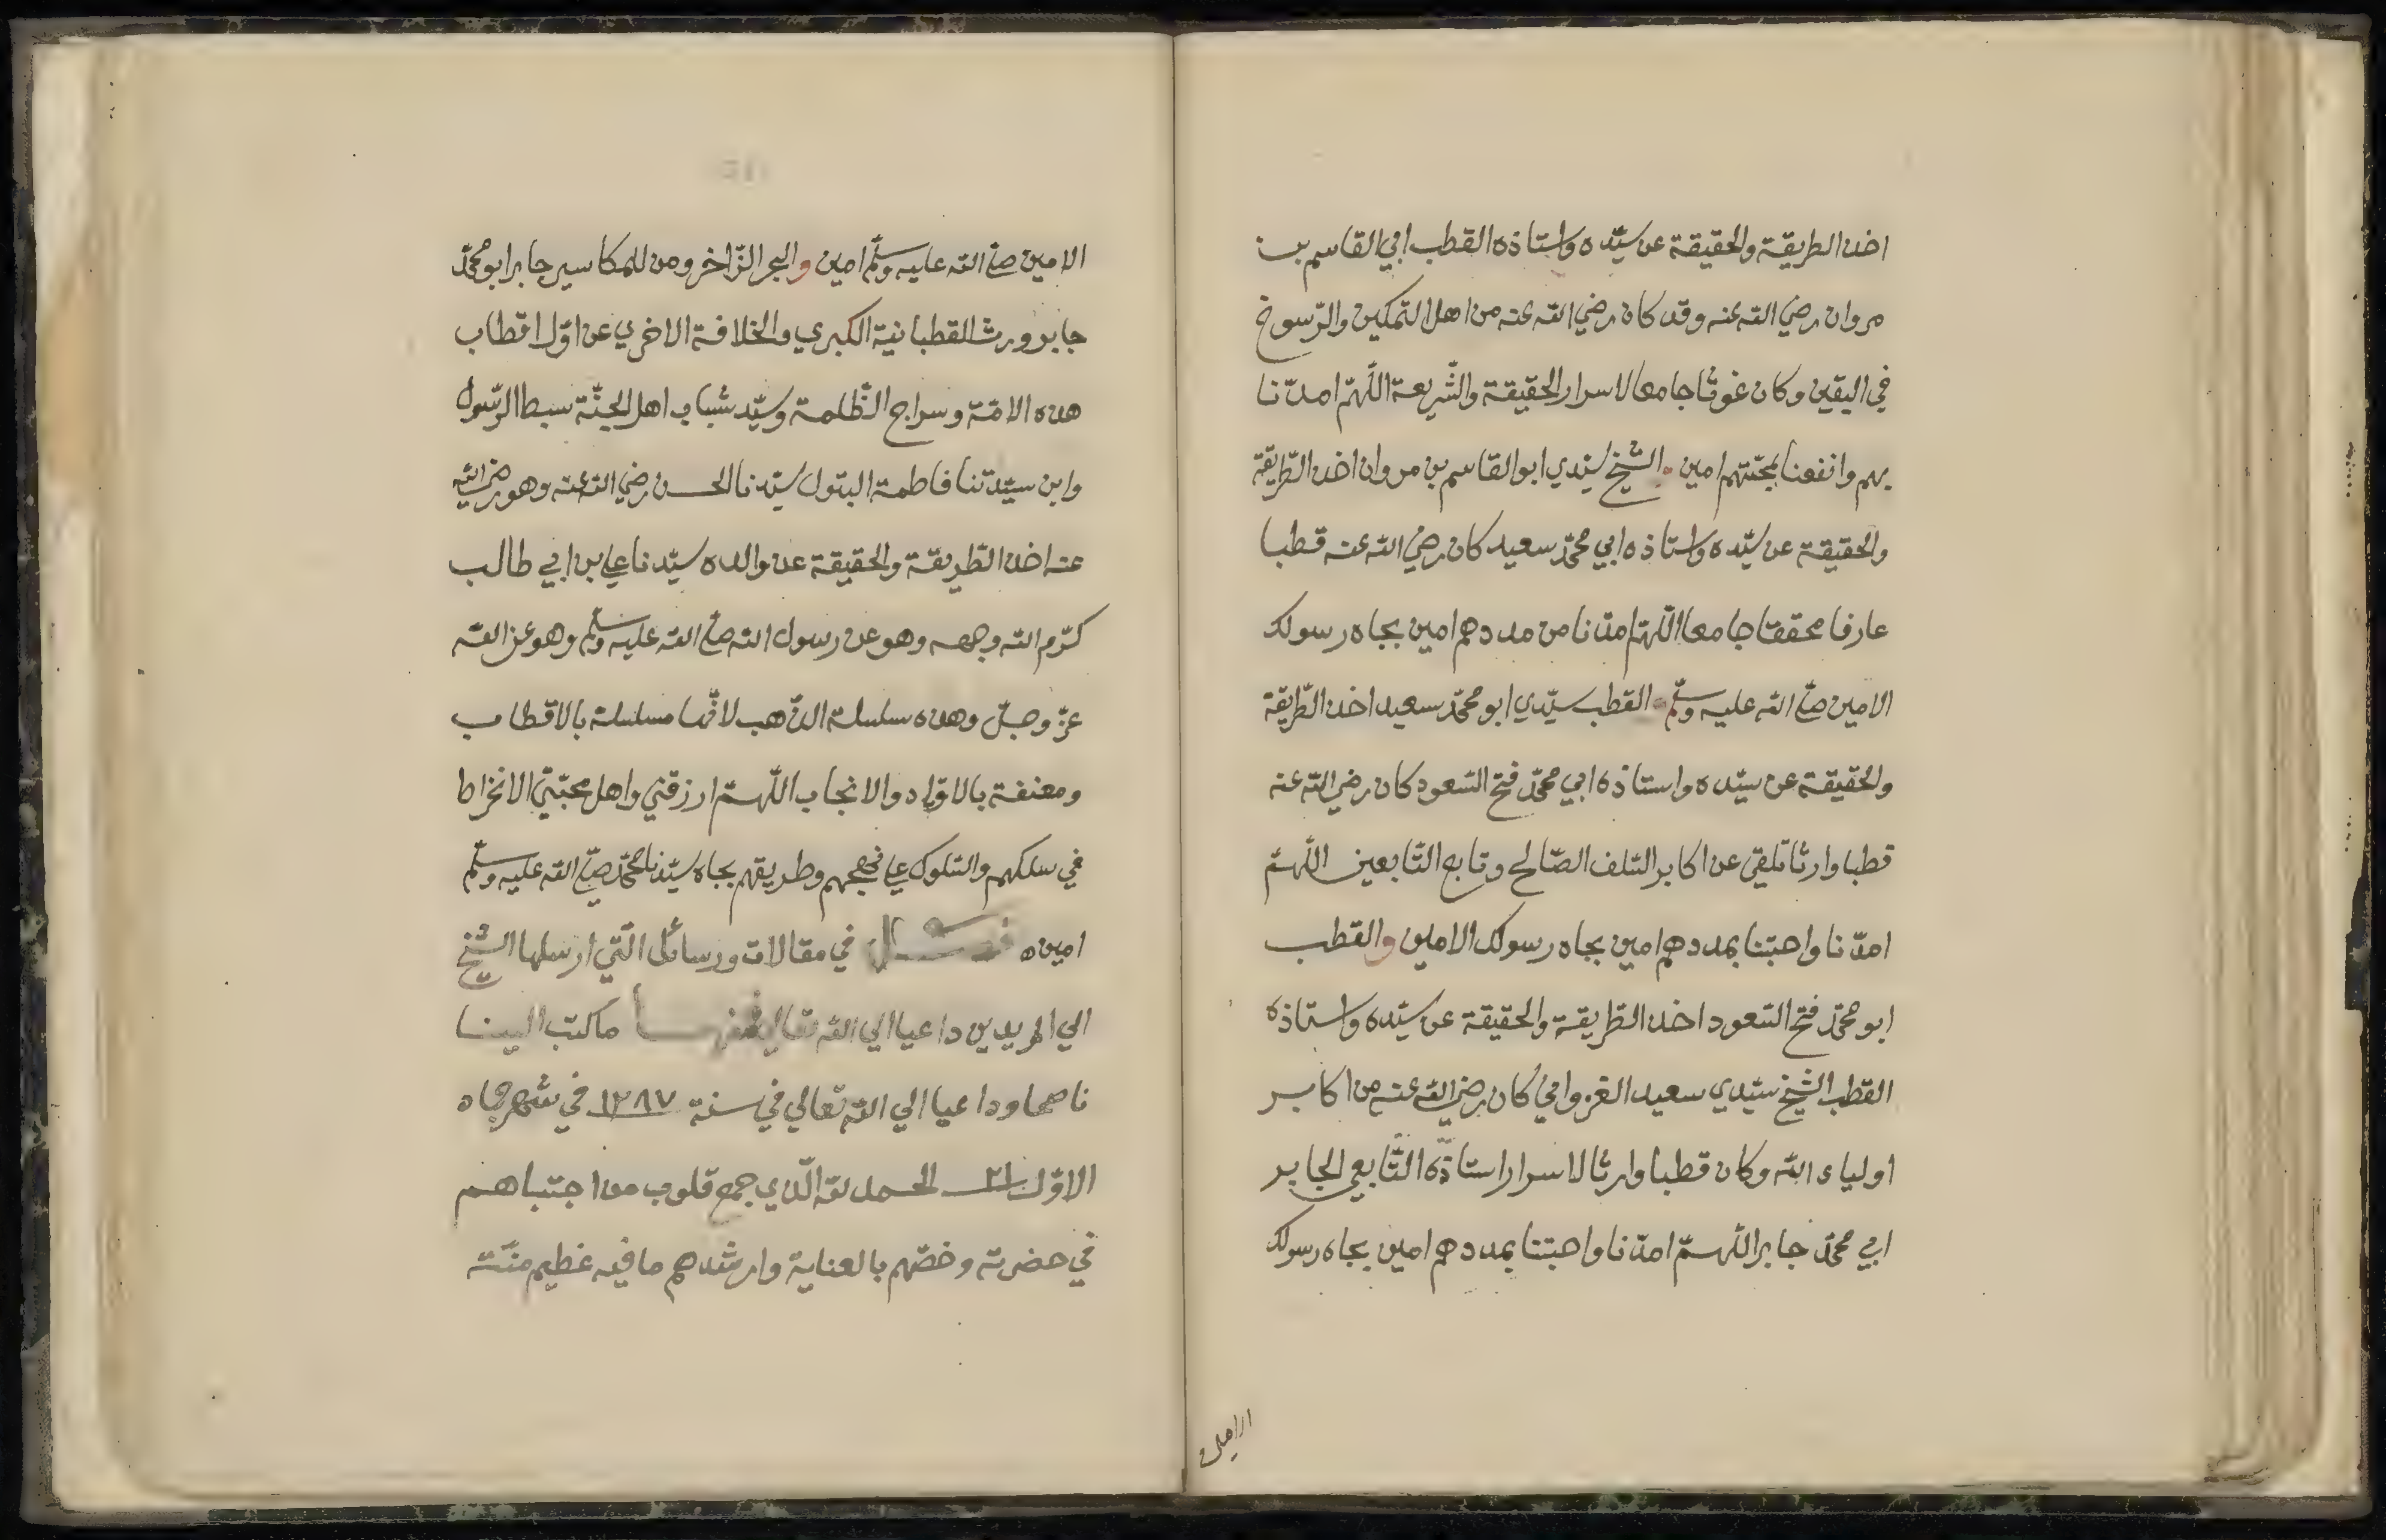 اخذ الطريقة والحقيقة عن سيّده واستاذه القطب ابي القاسم بن
مروان رضي الله عنه وقد كان رضي الله عنه من اهل التمكين والرّسوخ
في اليقين وكان غوثا جامعا لاسرار الحقيقة والشّريعة اللّهمّ امدّنا
بهم وانفعنا بمحبّتهم امين الشيخ سيّدي ابو القاسم بن مروان اخذ الطّريقة
والحقيقة عن سيّده واستاذه ابي محمّد سعيد كان رضي الله عنه قطبا
عارفا محققا جامعا اللّهمّ امدّنا من مددهم امين بجاه رسولك
الامين صلّى الله عليه وسلّم القطب سيّدي ابو محمّد سعيد اخذ الطّريقة
والحقيقة عن سيّده واستاذه ابي محمّد فتح السّعود كان رضي الله عنه
قطبا وارثا تلقى عن اكابر السّلف الصّالح وتابع التّابعين اللّهمّ
امدّنا واحبّتنا بمددهم امين بجاه رسولك الامين والقطب
ابو محمّد فتح السّعود اخذ الطّريقة والحقيقة عن سيّده واستاذه
القطب الشيخ سيّدي سعيد الغزواني كان رضي الله عنه من اكابر
اولياء الله وكان قطبا وارثا لاسرار استاذه التّابعي الجابر
ابي محمّد جابر اللّهمّ امدّنا واحبّتنا بمددهم امين بجاه رسولك
الامين
الامين صلّى الله عليه وسلّم امين والبحر الزّاخر ومن للمكاسير جابر ابو محمّد
جابر ورث القطبانية الكبري والخلافة الاخري عن اوّل اقطاب
هذه الامّة وسراج الظّلمة وسيّد شباب اهل الجنّة سبط الرّسول
وابن سيّدتنا فاطمة البتول سيّدنا الحسن رضي الله عنه وهو رضي الله
عنه اخذ الطّريقة والحقيقة عن والده سيّدنا علي بن ابي طالب
كرّم الله وجهه وهو عن رسول الله صلّى الله عليه وسلّم وهو عن الله
عزّ وجلّ وهذه سلسلة الذّهب لانّها مسلسلة بالاقطاب
ومعنفة بالاوتاد والانجاب اللّهمّ ارزقني واهل محبّتي الانخراط
في سلكهم والسّلوك على نهجهم وطريقهم بجاه سيّدنا محمّد صلّى الله عليه وسلّم
امين ه فصل في مقالات ورسائل الّتي ارسلها الشيخ
الي المريدين داعيا الي الله تعالي فمنها ما كتب الينا
ناصحا وداعيا الي الله تعالي في سنة ١٢٨٧ في شهر جماه
الاوّل ٢١ الحمد لله الّذي جمع قلوب من اجتباهم
في حضرته وخصّهم بالعناية وارشدهم ما فيه عظيم منّته